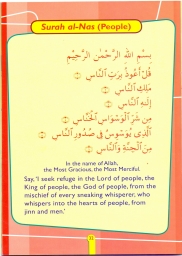 Surah al-Nas (People)
بِسْمِ اللَّهِ الرَّحْمَٰنِ الرَّحِيمِ
قُلْ أَعُوذُ بِرَبِّ النَّاسِ
مَلِكِ النَّاسِ
إِلَٰهِ النَّاسِ
مِن شَرِّ الْوَسْوَاسِ الْخَنَّاسِ
الَّذِي يُوَسْوِسُ فِي صُدُورِ النَّاسِ
مِنَ الْجِنَّةِ وَالنَّاسِ
In the name of Allah,
the Most Gracious, the Most Merciful.
Say, 'I seek refuge in the Lord of people, the
King of people, the God of people, from the
mischief of every sneaking whisperer, who
whispers into the hearts of people, from
jinn and men.'